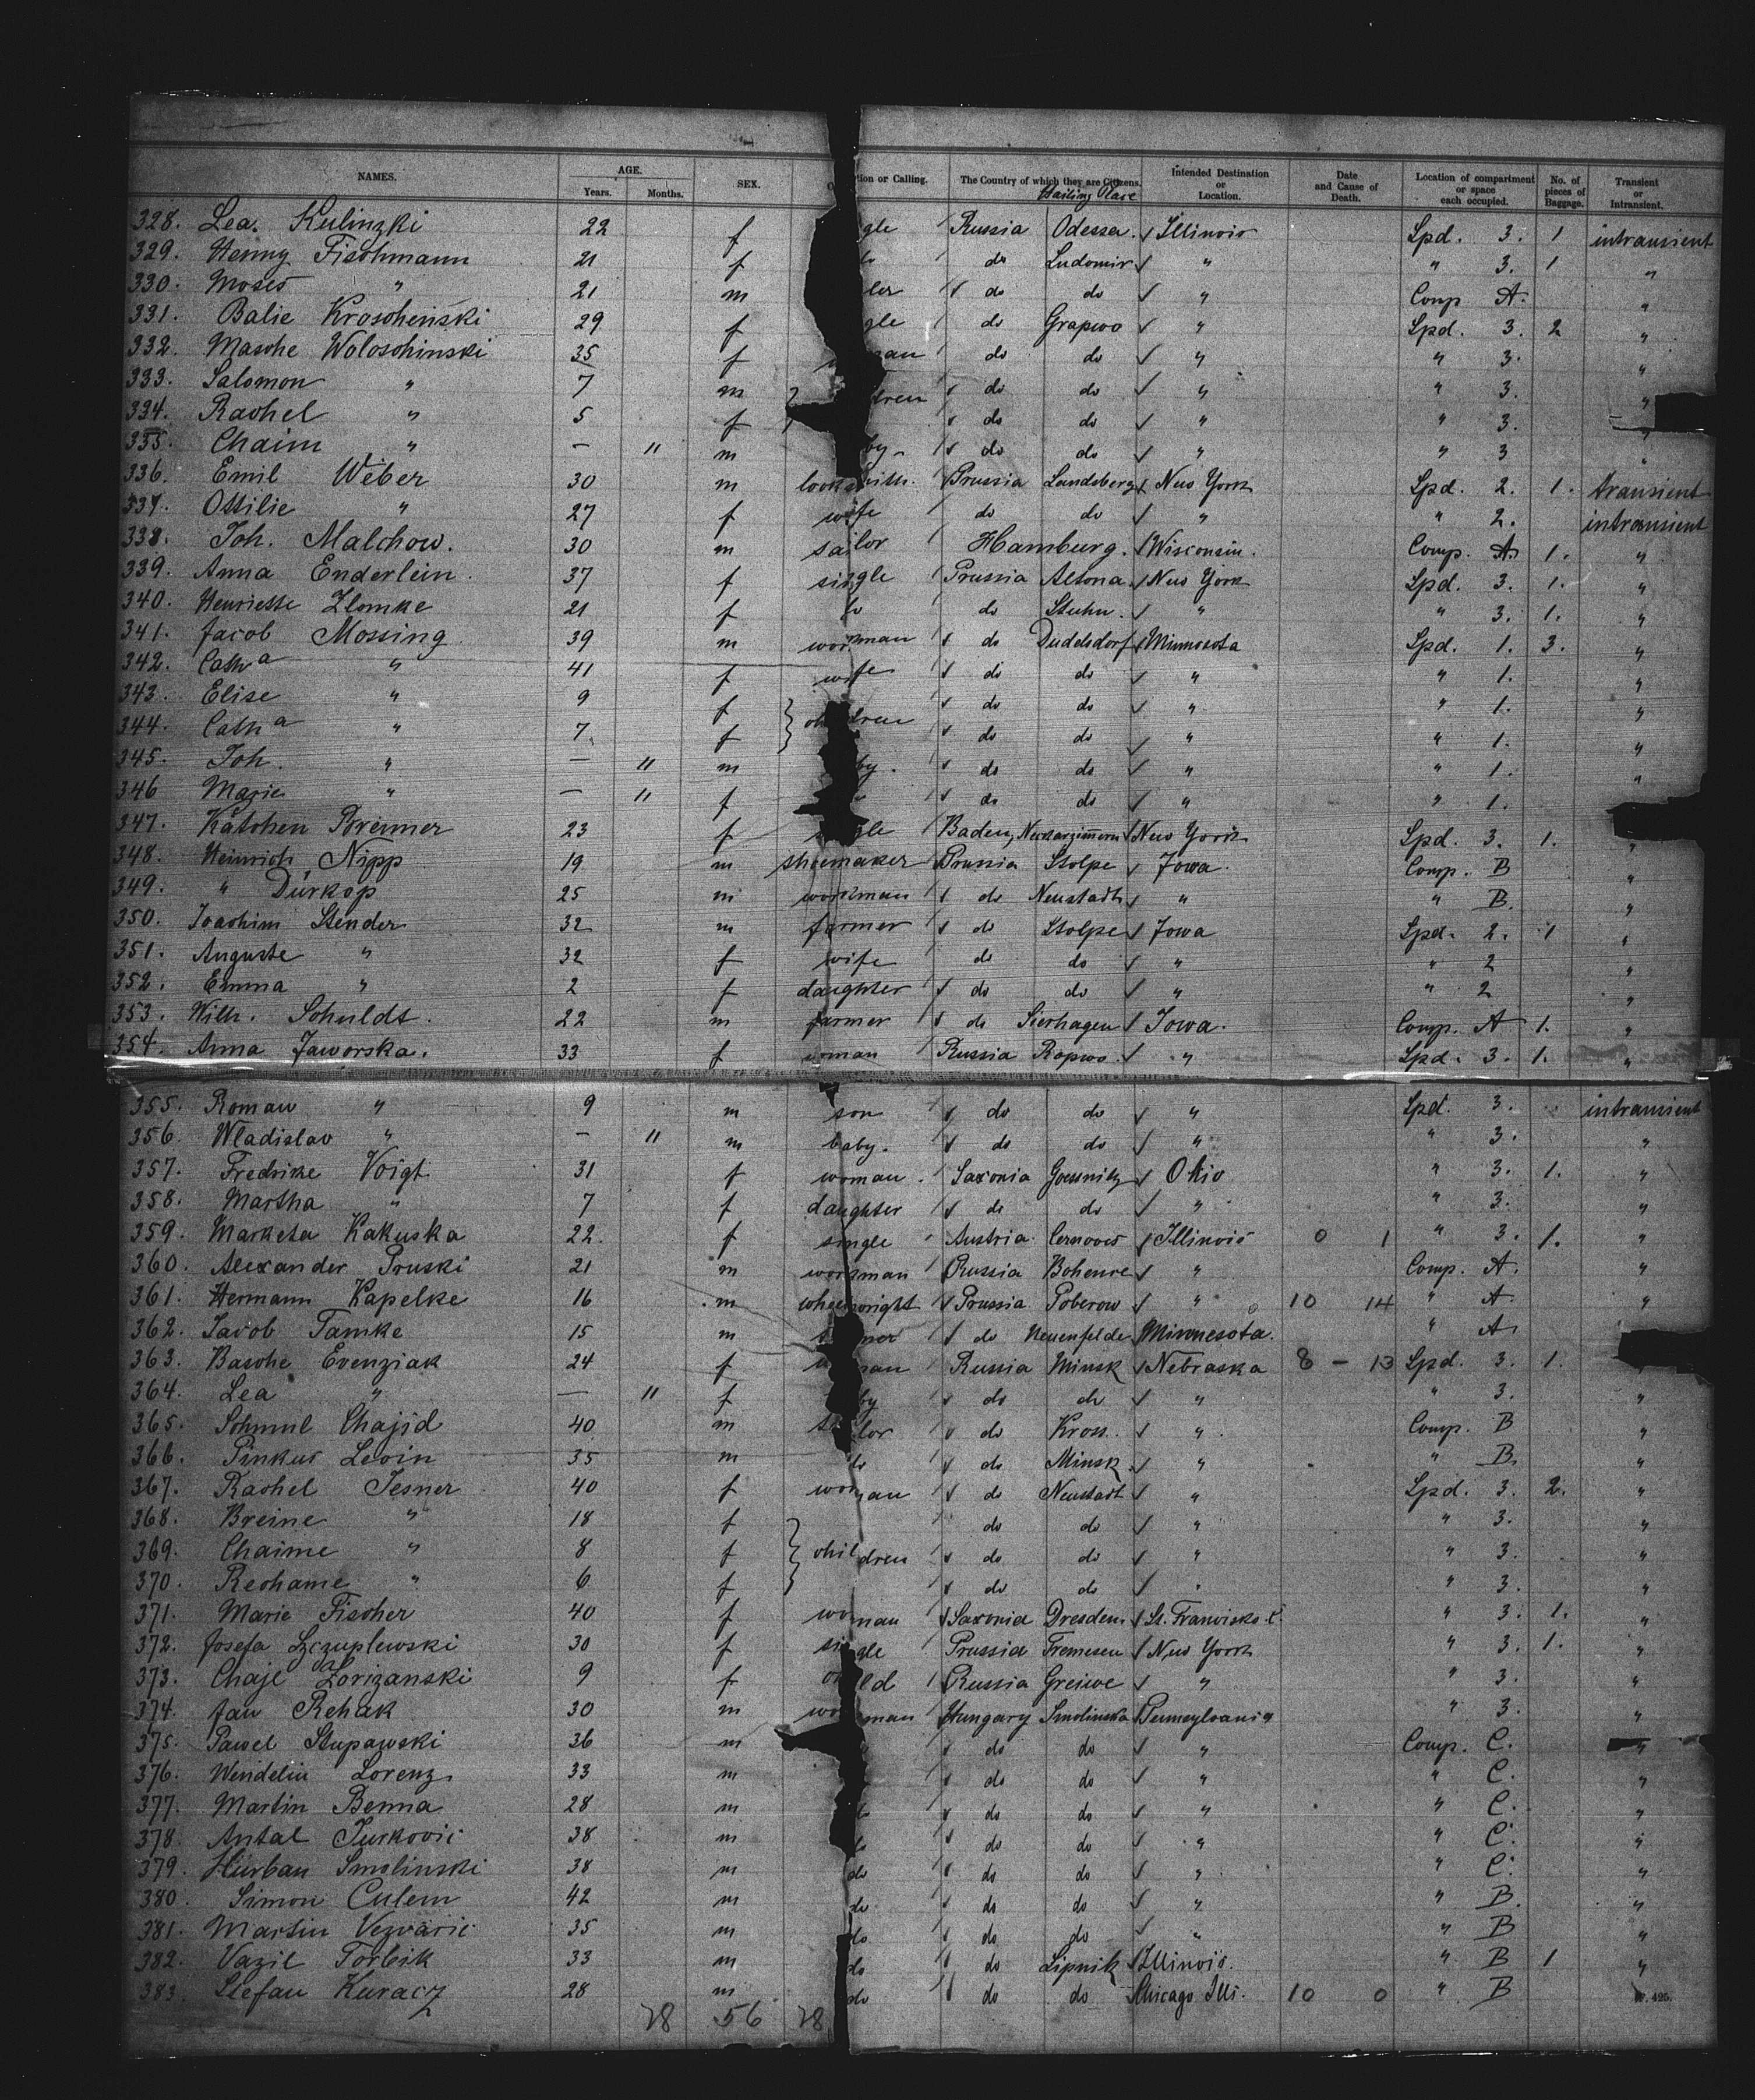 NAMES. AGE. Years. Months. SEX. tion or Calling. The Country of which they are Citizens. Hailing Place Intended Destination or Location. Date and Cause of Death. Location of compartment or space each occupied. No. of pieces of Baggage. Transient or Intransient.
328. Lea Kulinzki 22 f gle Russia Odessa. Illinois Spd. 3. 1 intransient
329. Henny Fischmann 21 f do Ludomir " " 3. 1 "
330. Moses " 21 m ler do do " Comp A. "
331. Balie Kroschenski 29 f gle do Grapwo " Spd. 3. 2 "
332. Masche Woloschinski 35 f man do do " " 3. "
333. Salomon " 7 m dren do do " " 3. "
334. Rachel " 5 f do do " " 3. "
335. Chaim " – " m by do do " " 3 "
336. Emil Weber 30 m locksmith. Prussia Landsberg New York Spd. 2. 1. transient
337. Ottilie " 27 f wife do do " " 2. intransient
338. Joh. Malchow. 30 m sailor Hamburg. Wisconsin. Comp. A. 1. "
339. Anna Enderlein. 37 f single Prussia Altona. New York Spd. 3. 1. "
340. Henriette Zlomke 21 f do do Stuhn. " " 3. 1. "
341. Jacob Mossing 39 m workman do Dudelsdorf Minnesota Spd. 1. 3. "
342. Catha " 41 f wife do do " " 1. "
343. Elise " 9 f children do do " " 1. "
344. Catha " 7 f do do " " 1. "
345. Joh. " – 11 m by. do do " " 1. "
346 Marie " – 11 f do do " " 1.
347. Kätchen Breimer 23 f single Baden, Neckarzimmern New York Spd. 3. 1. "
348. Heinrich Nipp 19 m shoemaker Prussia Stolpe Iowa. Comp. B "
349. " Dürkop 25 m workman do Neustadt " " B. "
350. Joachim Stender 32 m farmer do Stolpe Iowa Spd. 2. 1 "
351. Auguste " 32 f wife do do " " 2 "
352. Emma " 2 f daughter do do " " 2 "
353. Wilh. Schuldt. 22 m farmer do Sierhagen Iowa. Comp. A 1. "
354. Anna Jaworska. 33 f woman Russia Rapwo. " Spd. 3. 1. "
355. Roman " 9 m son do do " Spd. 3. intransient
356. Wladislav " – 11 m baby. do do " " 3. "
357. Fredrike Voigt 31 f woman. Saxonia Goessnitz Ohio " 3. 1. "
358. Martha " 7 f daughter do do " " 3. "
359. Marketa Kakuska 22. f single Austria Cernoves Illinois 0 1 " 3. 1. "
360. Alexander Pruski 21 m workman Russia Bohenre " Comp. A. "
361. Hermann Kapelke 16 m wheelwright Prussia Poberow " 10 14 " A. "
362. Jacob Tamke 15 m do Neuenfelde Minnesota. " A.
363. Basche Evenziak 24 f woman Russia Minsk Nebraska 8 – 13 Spd. 3. 1.
364. Lea " – 11 f by do do " " 3. "
365. Schmul Chajid 40 m lor do Kross. " Comp. B "
366. Pinkus Levin 35 m do do Minsk " " B. "
367. Rachel Jesner 40 f woman do Neustadt " Spd. 3. 2. "
368. Breine " 18 f do do " " 3. "
369. Chaime " 8 f children do do " " 3. "
370. Rechame " 6 f do do " " 3. "
371. Marie Fischer 40 f woman Saxonia Dresden St. Francisko C. " 3. 1. "
372. Josefa Szczuplewski 30 f single Prussia Tremesen New York " 3. 1. "
373. Chaje Zorizanski 9 f child Russia Greiwe " " 3. "
374. Jan Rehak 30 m workman Hungary Smolinska Pennsylvania " 3. "
375. Pawel Stupawski 36 m do do " Comp. C. "
376. Wendelin Lorenz 33 m do do " " C. "
377. Martin Benna 28 m do do do " " C. "
378. Antal Jurkovic 38 m do do do " " C. "
379. Hurban Smolinski 38 m do do do " " C. "
380. Simon Culem 42 m do do do " " B. "
381. Martin Vezvaric 35 m do do do " " B "
382. Vazil Torbik 33 m do do Lipnik Illinois. " B 1 "
383. Stefan Kuracz 28 m do do do Chicago Illi. 10 0 " B
28 56 28